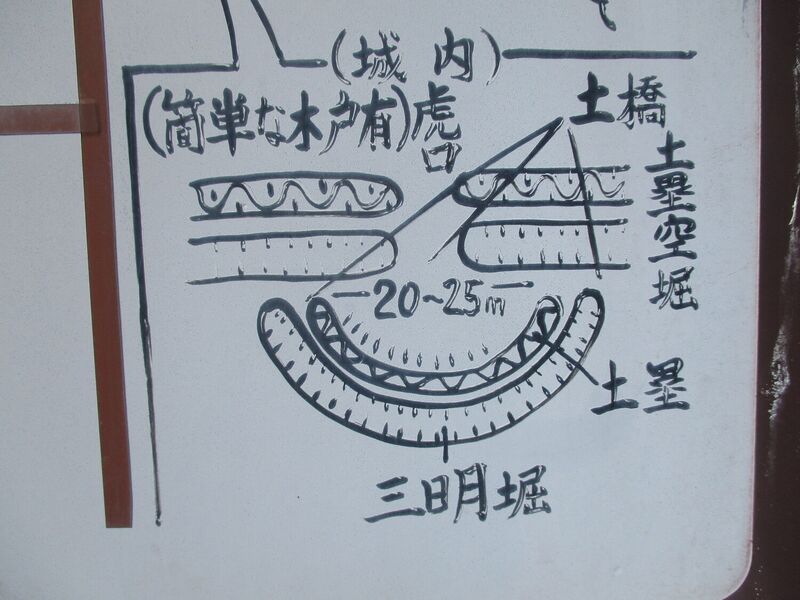 (城内)
(簡単な木戸有)虎口
土橋
土塁空堀
20~25m
土塁
三日月堀